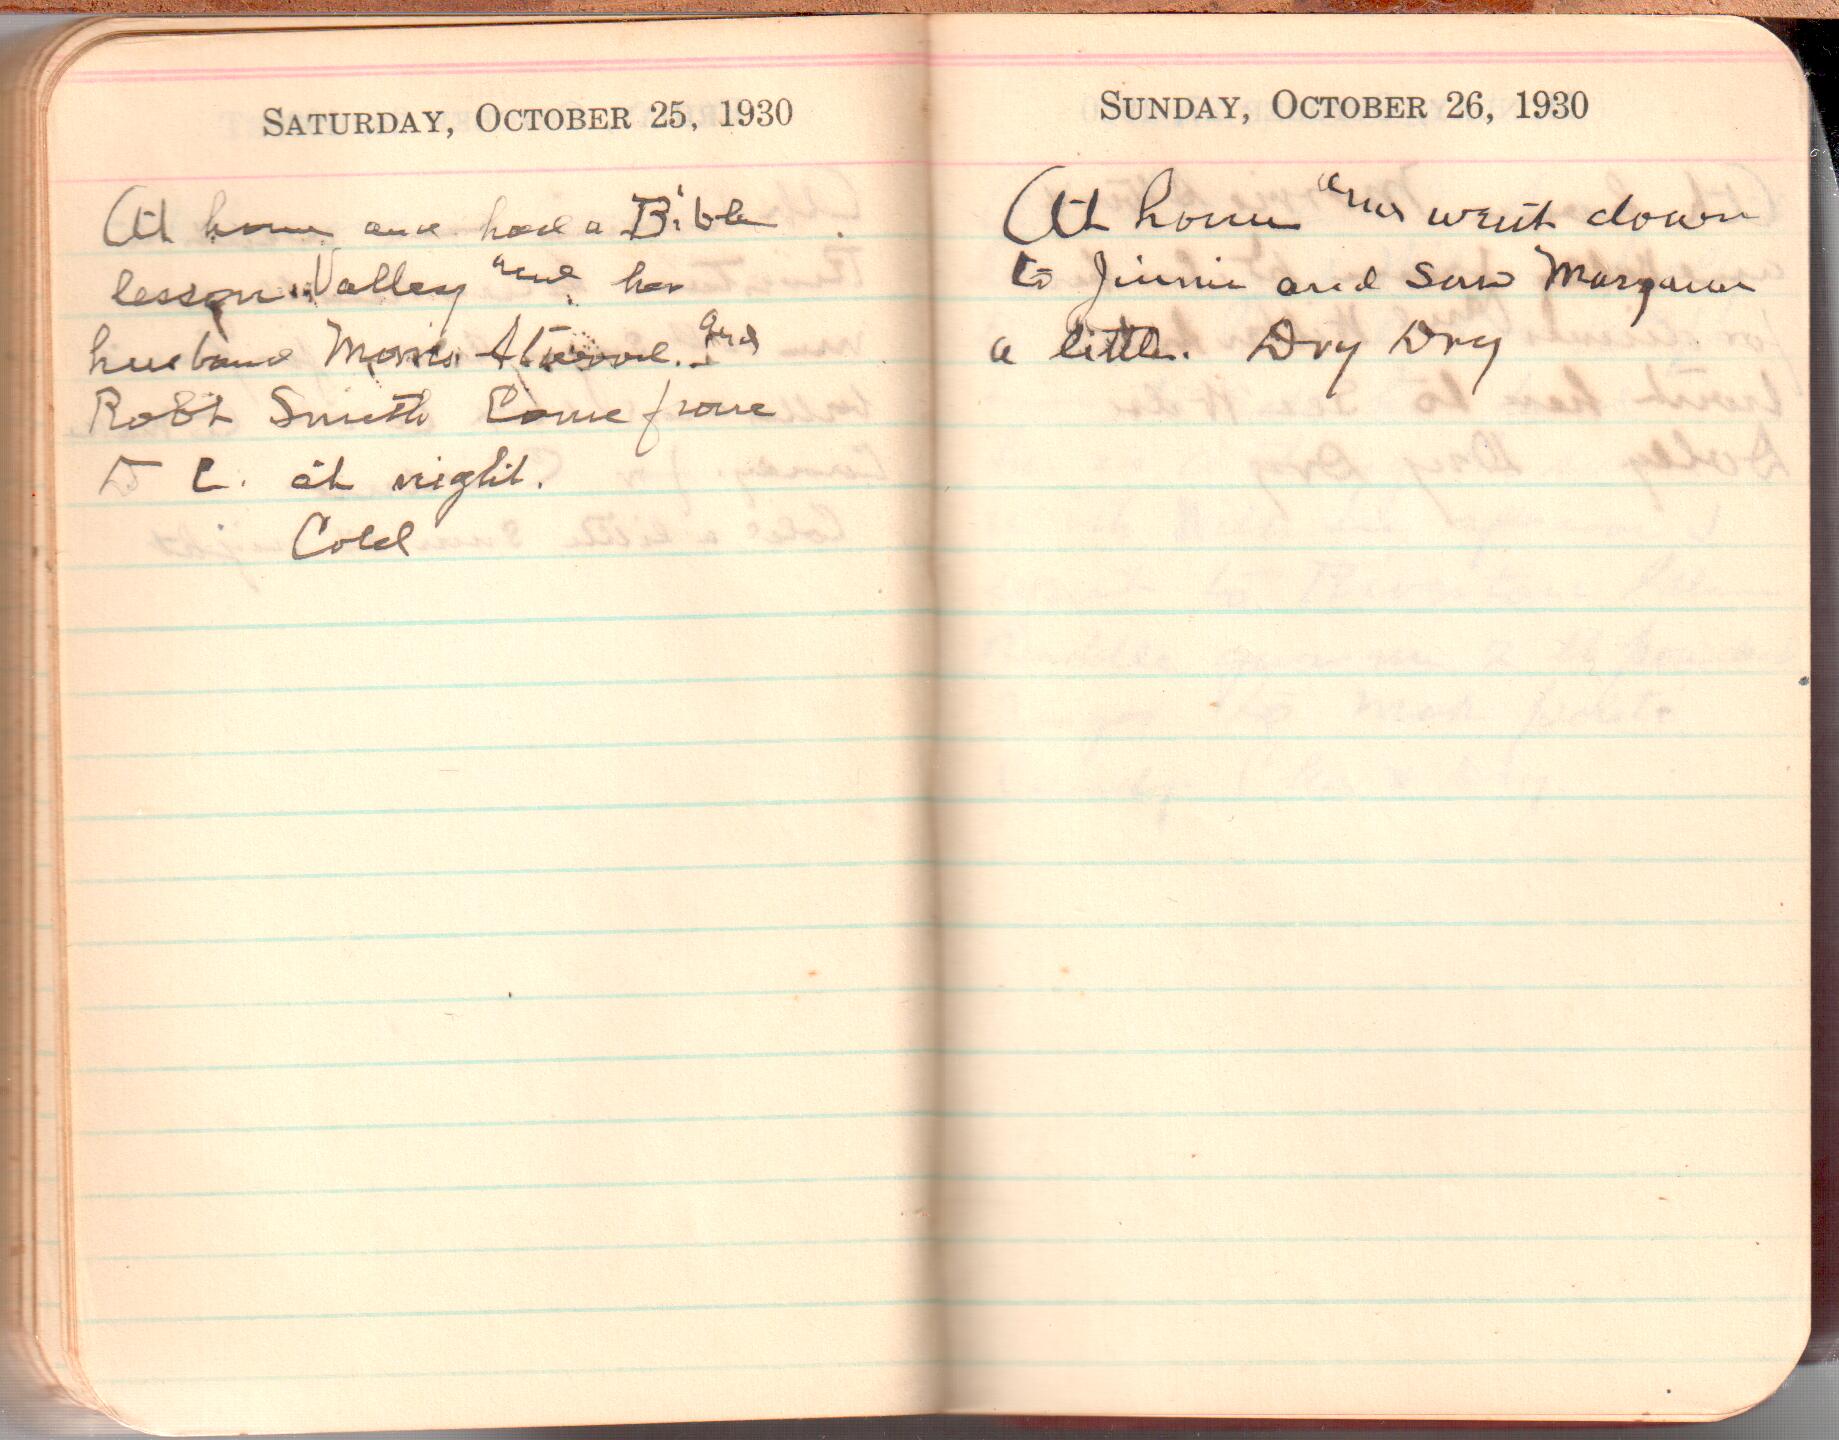 SATURDAY, OCTOBER 25, 1930
At home and had a Bible
lesson. Valley and her
husband Morris Atwood. and
Robt Smith Come from
D C. at night.
Cold
SUNDAY, OCTOBER 26, 1930
At home and went down
to Jinnie and saw
a little. Dry Dry